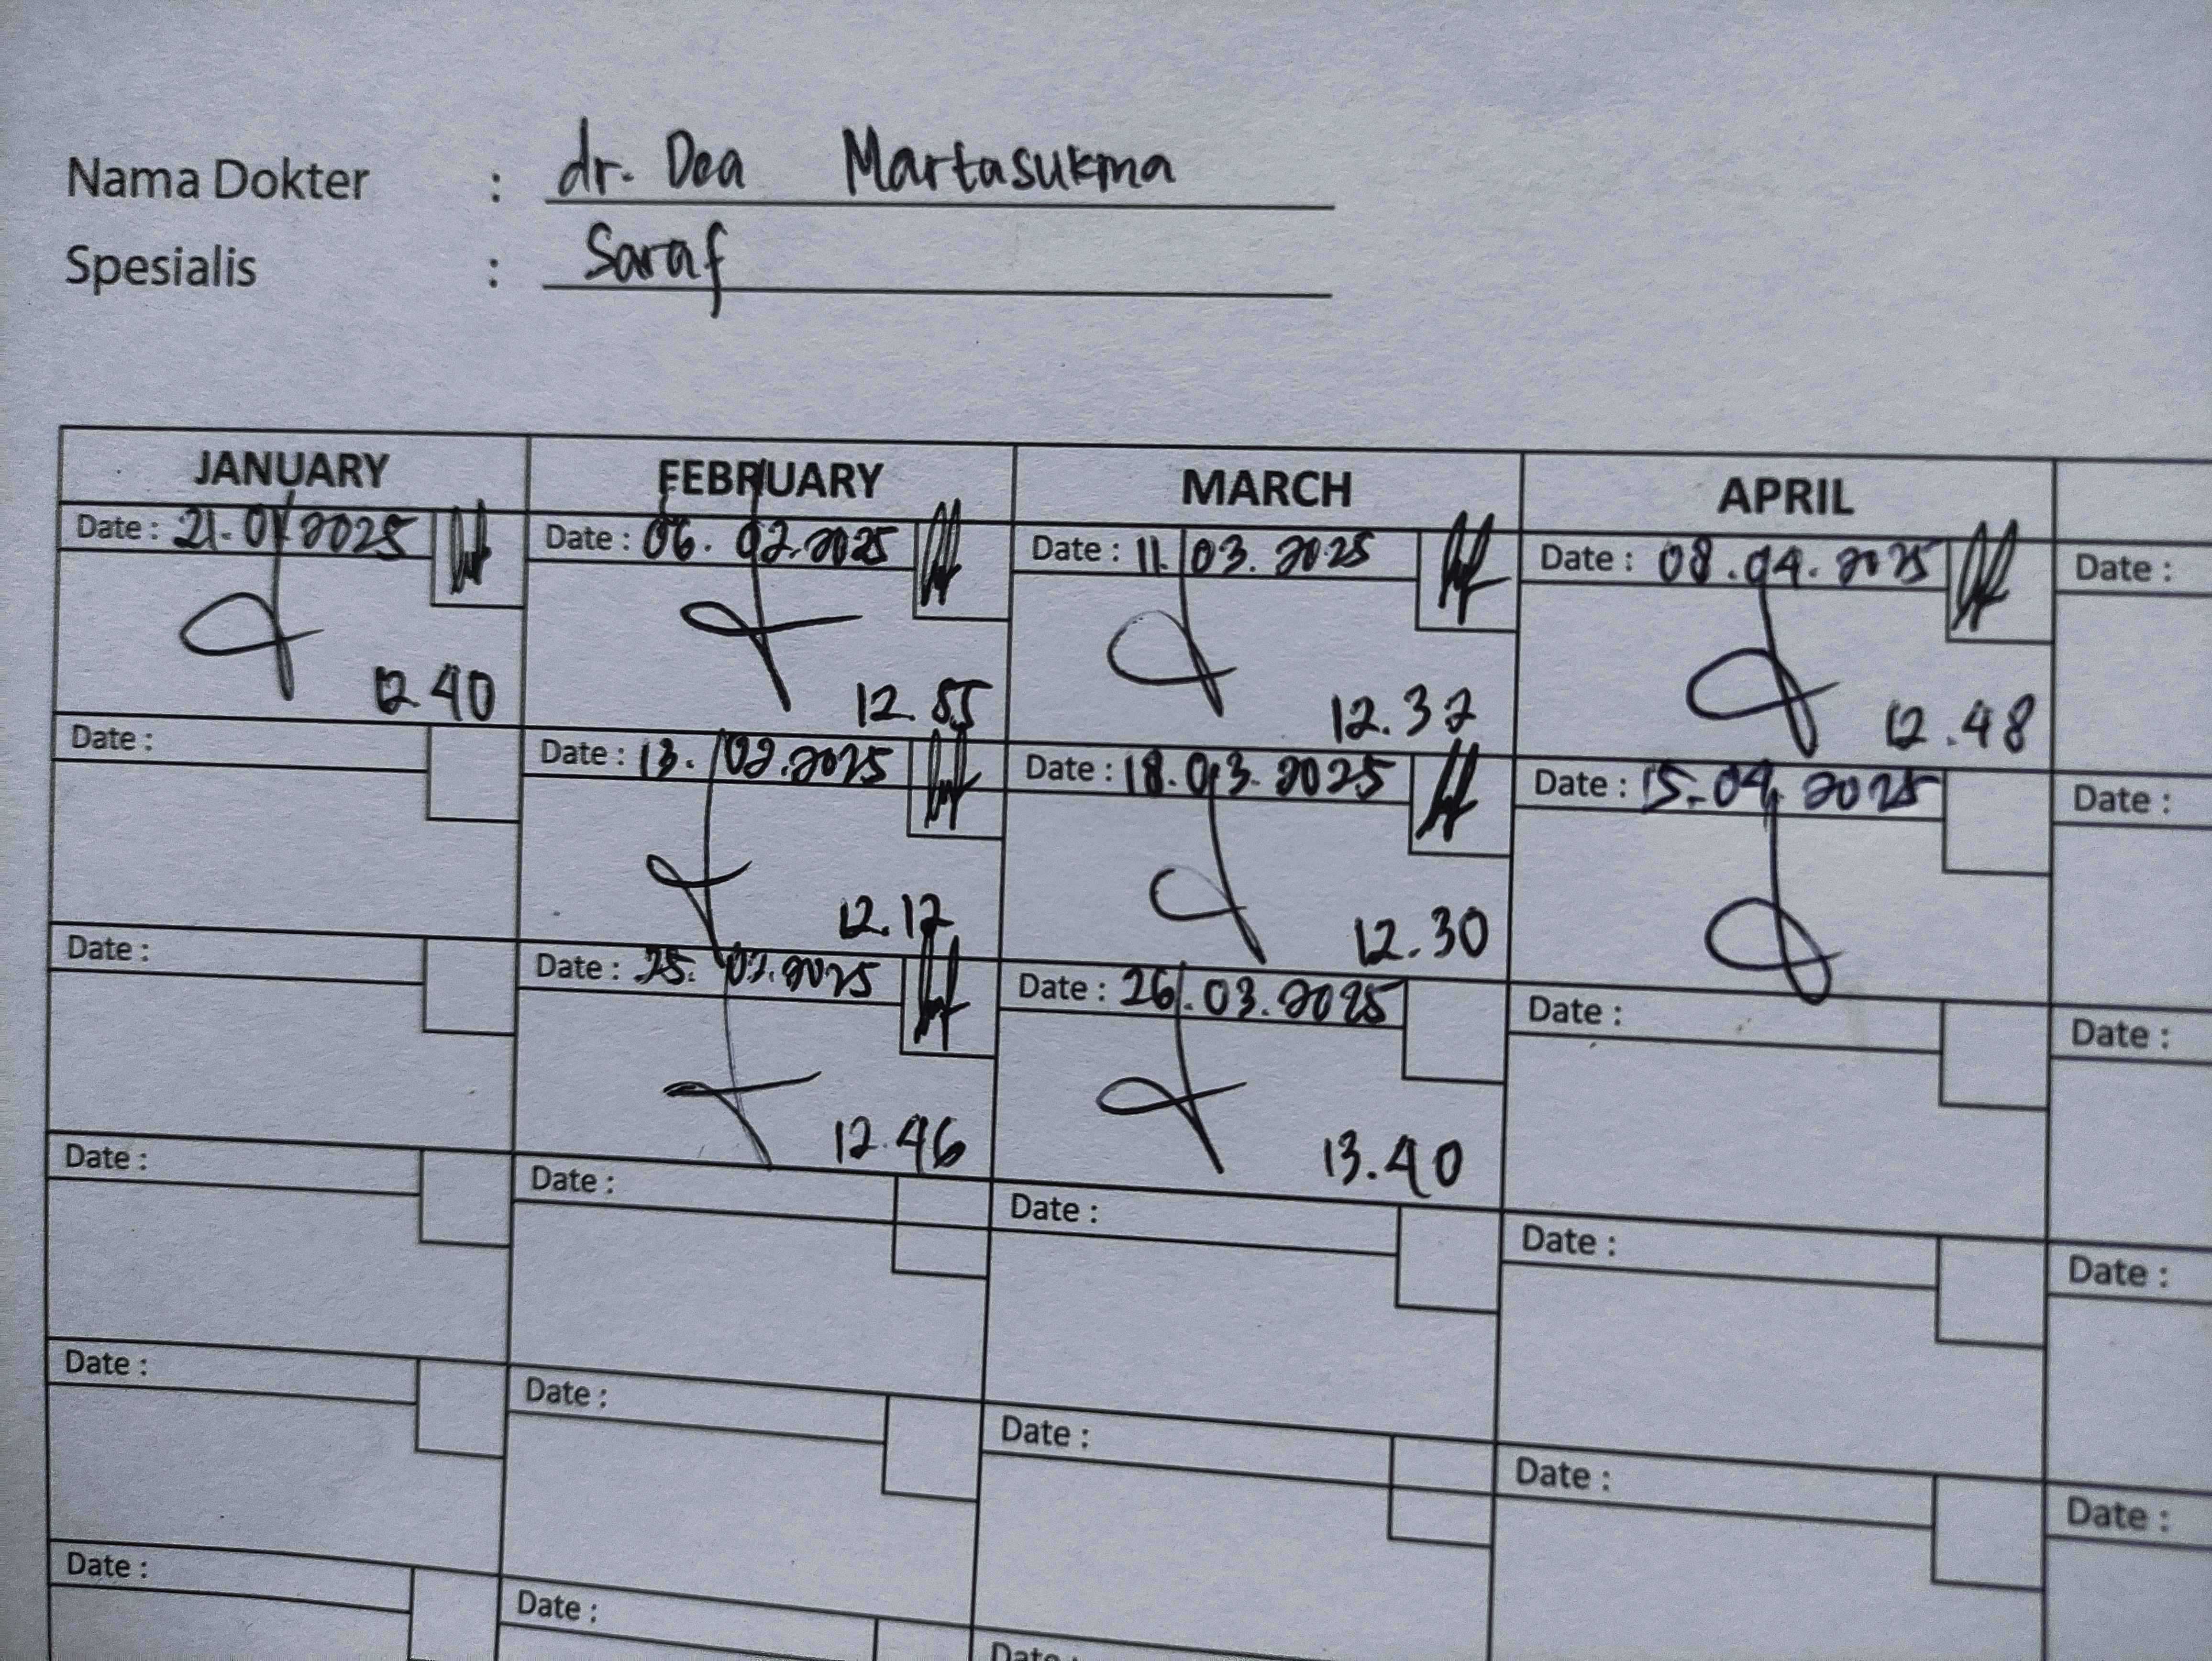 Nama Dokter : dr. Dea Martasukma
Spesialis : Saraf
JANUARY FEBRUARY MARCH APRIL
Date : 21.01.2025 Date : 06.02.2025 Date : 11.03.2025 Date : 08.04.2025 Date :
12.40 12.55 12.32 12.48
Date : Date : 13.02.2025 Date : 18.03.2025 Date : 15.04.2025 Date :
12.17 12.30
Date : Date : 25.02.2025 Date : 26.03.2025 Date : Date :
12.46 13.40
Date : Date : Date : Date : Date :
Date : Date : Date : Date : Date :
Date : Date : Date :